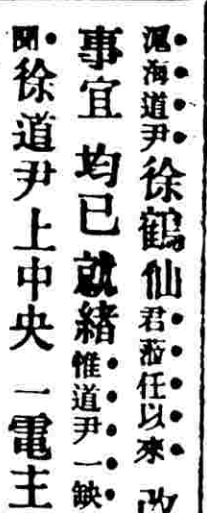 滬海道尹徐鶴仙君蒞任以來
事宜均已就緒惟道尹一缺
聞徐道尹上中央一電主